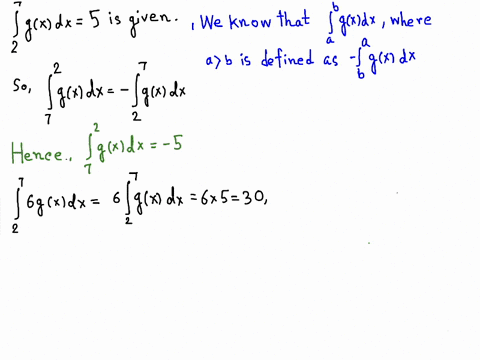 ∫₂⁷ g(x) dx = 5 is given.
, We know that ∫ₐᵇ g(x)dx, where
a>b is defined as -∫_b^a g(x) dx
So, ∫₇² g(x)dx = -∫₂⁷ g(x) dx
Hence, ∫₇² g(x) dx = -5
∫₂⁷ 6g(x)dx = 6∫₂⁷ g(x) dx = 6×5=30,